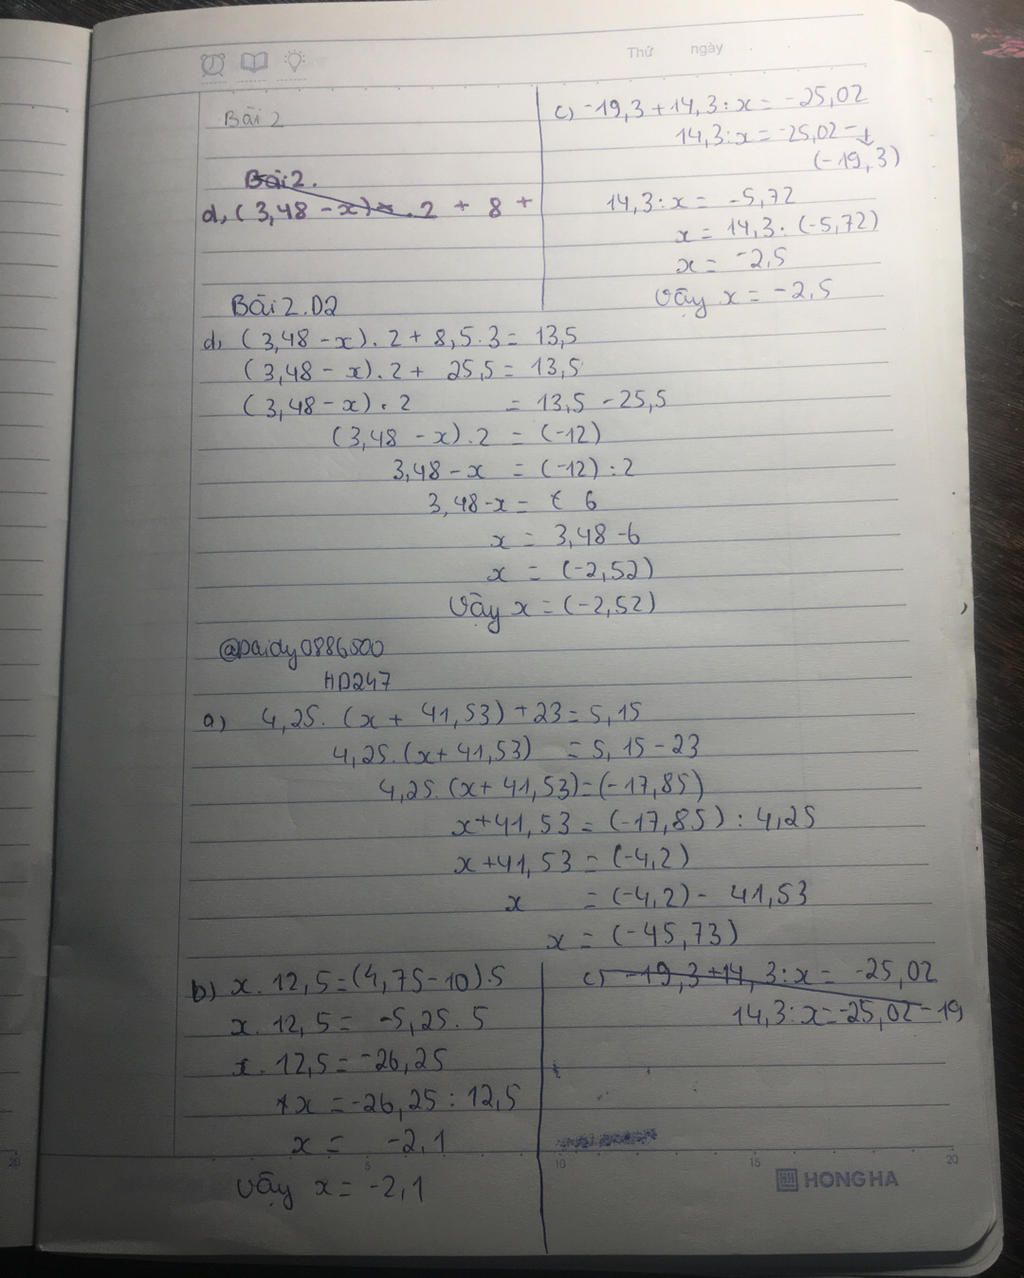 Thứ ngày
Bài 2
Bài 2.
d, (3,48 - x) . 2 + 8 +
c, -19,3 + 14,3 : x = -25,02
14,3 : x = -25,02 -
(-19,3)
14,3 : x = -5,72
x = 14,3 : (-5,72)
x = -2,5
Vậy x = -2,5
Bài 2.D2
d, (3,48 - x) . 2 + 8,5 . 3 = 13,5
(3,48 - x) . 2 + 25,5 = 13,5
(3,48 - x) . 2 = 13,5 - 25,5
(3,48 - x) . 2 = (-12)
3,48 - x = (-12) : 2
3,48 - x = 6
x = 3,48 - 6
x = (-2,52)
Vậy x = (-2,52)
@paidy0886500
HD247
a) 4,25 . (x + 41,53) + 23 = 5,15
4,25 . (x + 41,53) = 5,15 - 23
4,25 . (x + 41,53) = (-17,85)
x + 41,53 = (-17,85) : 4,25
x + 41,53 = (-4,2)
x = (-4,2) - 41,53
x = (-45,73)
b) x . 12,5 = (4,75 - 10) . 5
x . 12,5 = -5,25 . 5
x . 12,5 = -26,25
x = -26,25 : 12,5
x = -2,1
Vậy x = -2,1
c) -19,3 + 14,3 : x = -25,02
14,3 : x = -25,02 - 19
20 5 10 15 20
HONG HA